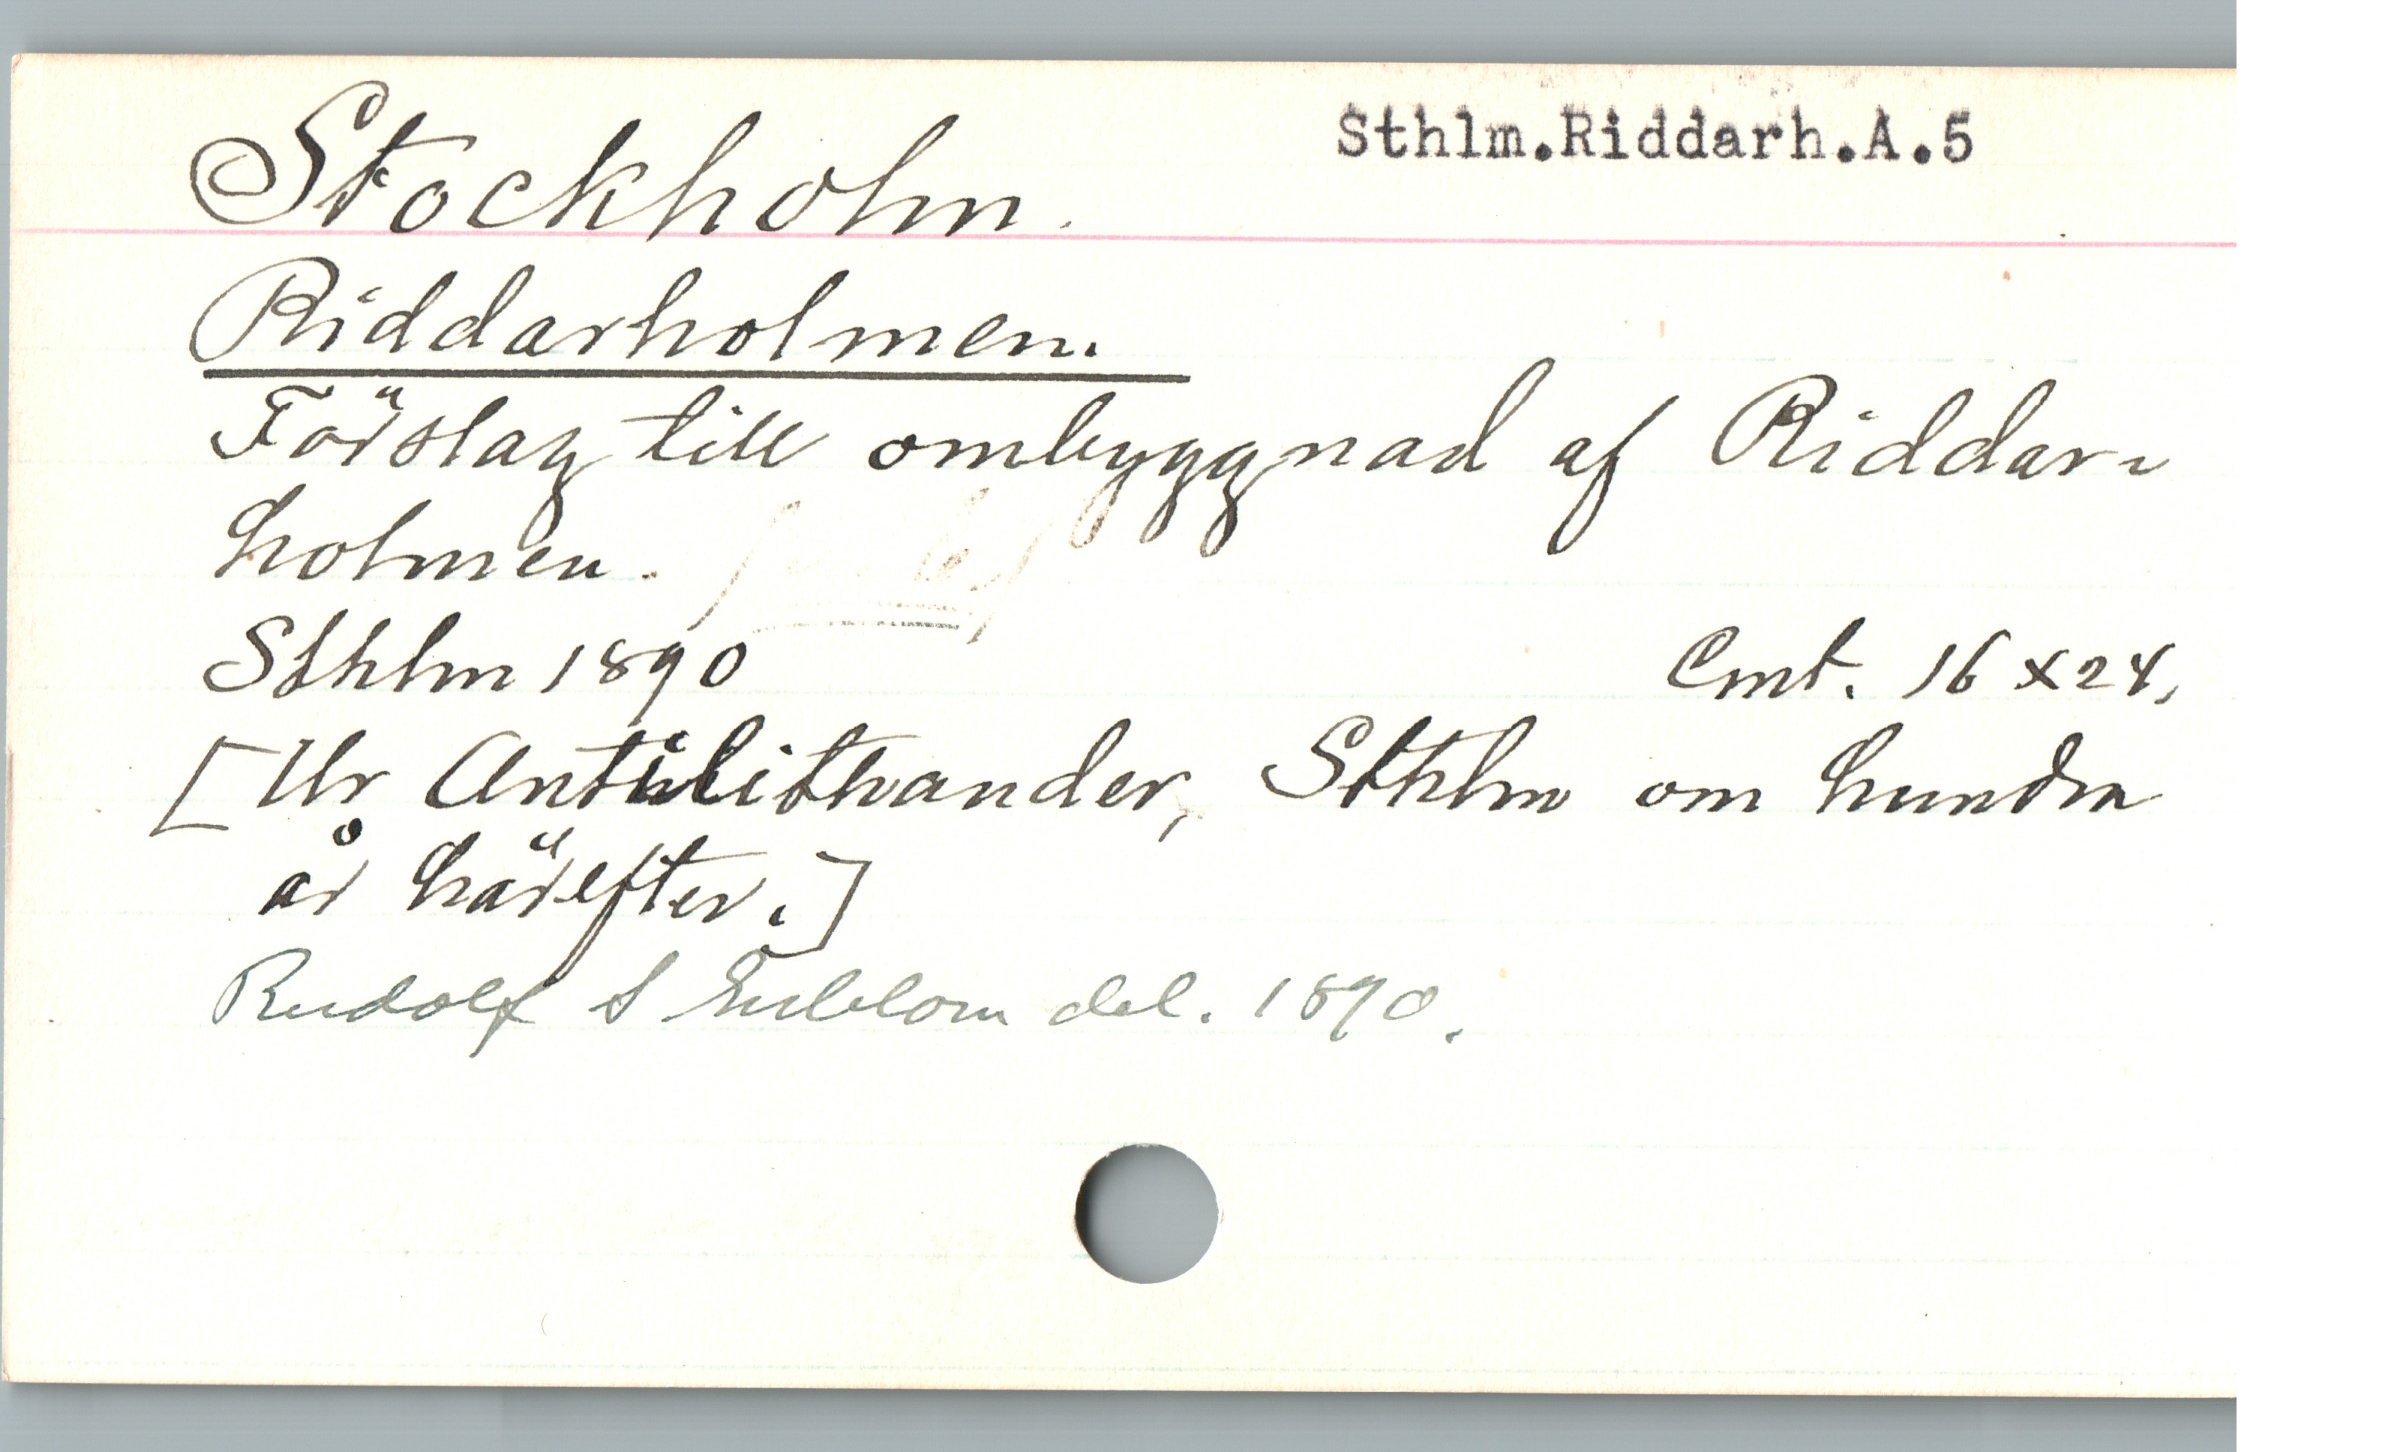 Sthlm.Riddarh.A.5
Stockholm.
Riddarholmen.
Förslag till ombyggnad af Riddar-
holmen.
Sthlm 1890 Cmt. 16 x 24.
[Ur Antilithander, Sthlm om hundra
år härefter.]
Rudolf S Enblom del. 1890.